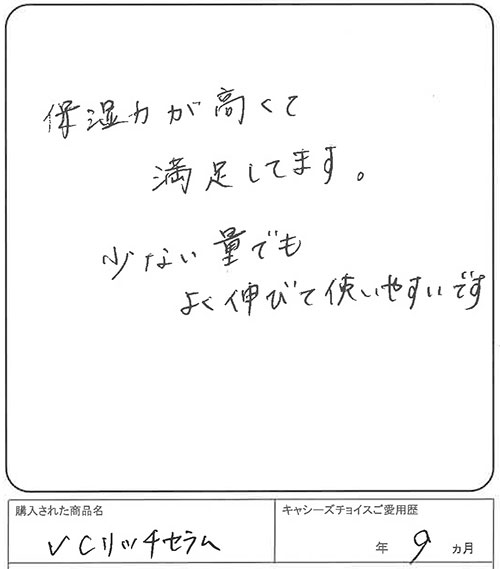 保湿力が高くて
満足してます。
少ない量でも
よく伸びて使いやすいです
購入された商品名
VCリッチセラム
キャシーズチョイスご愛用歴
年 9 ヵ月